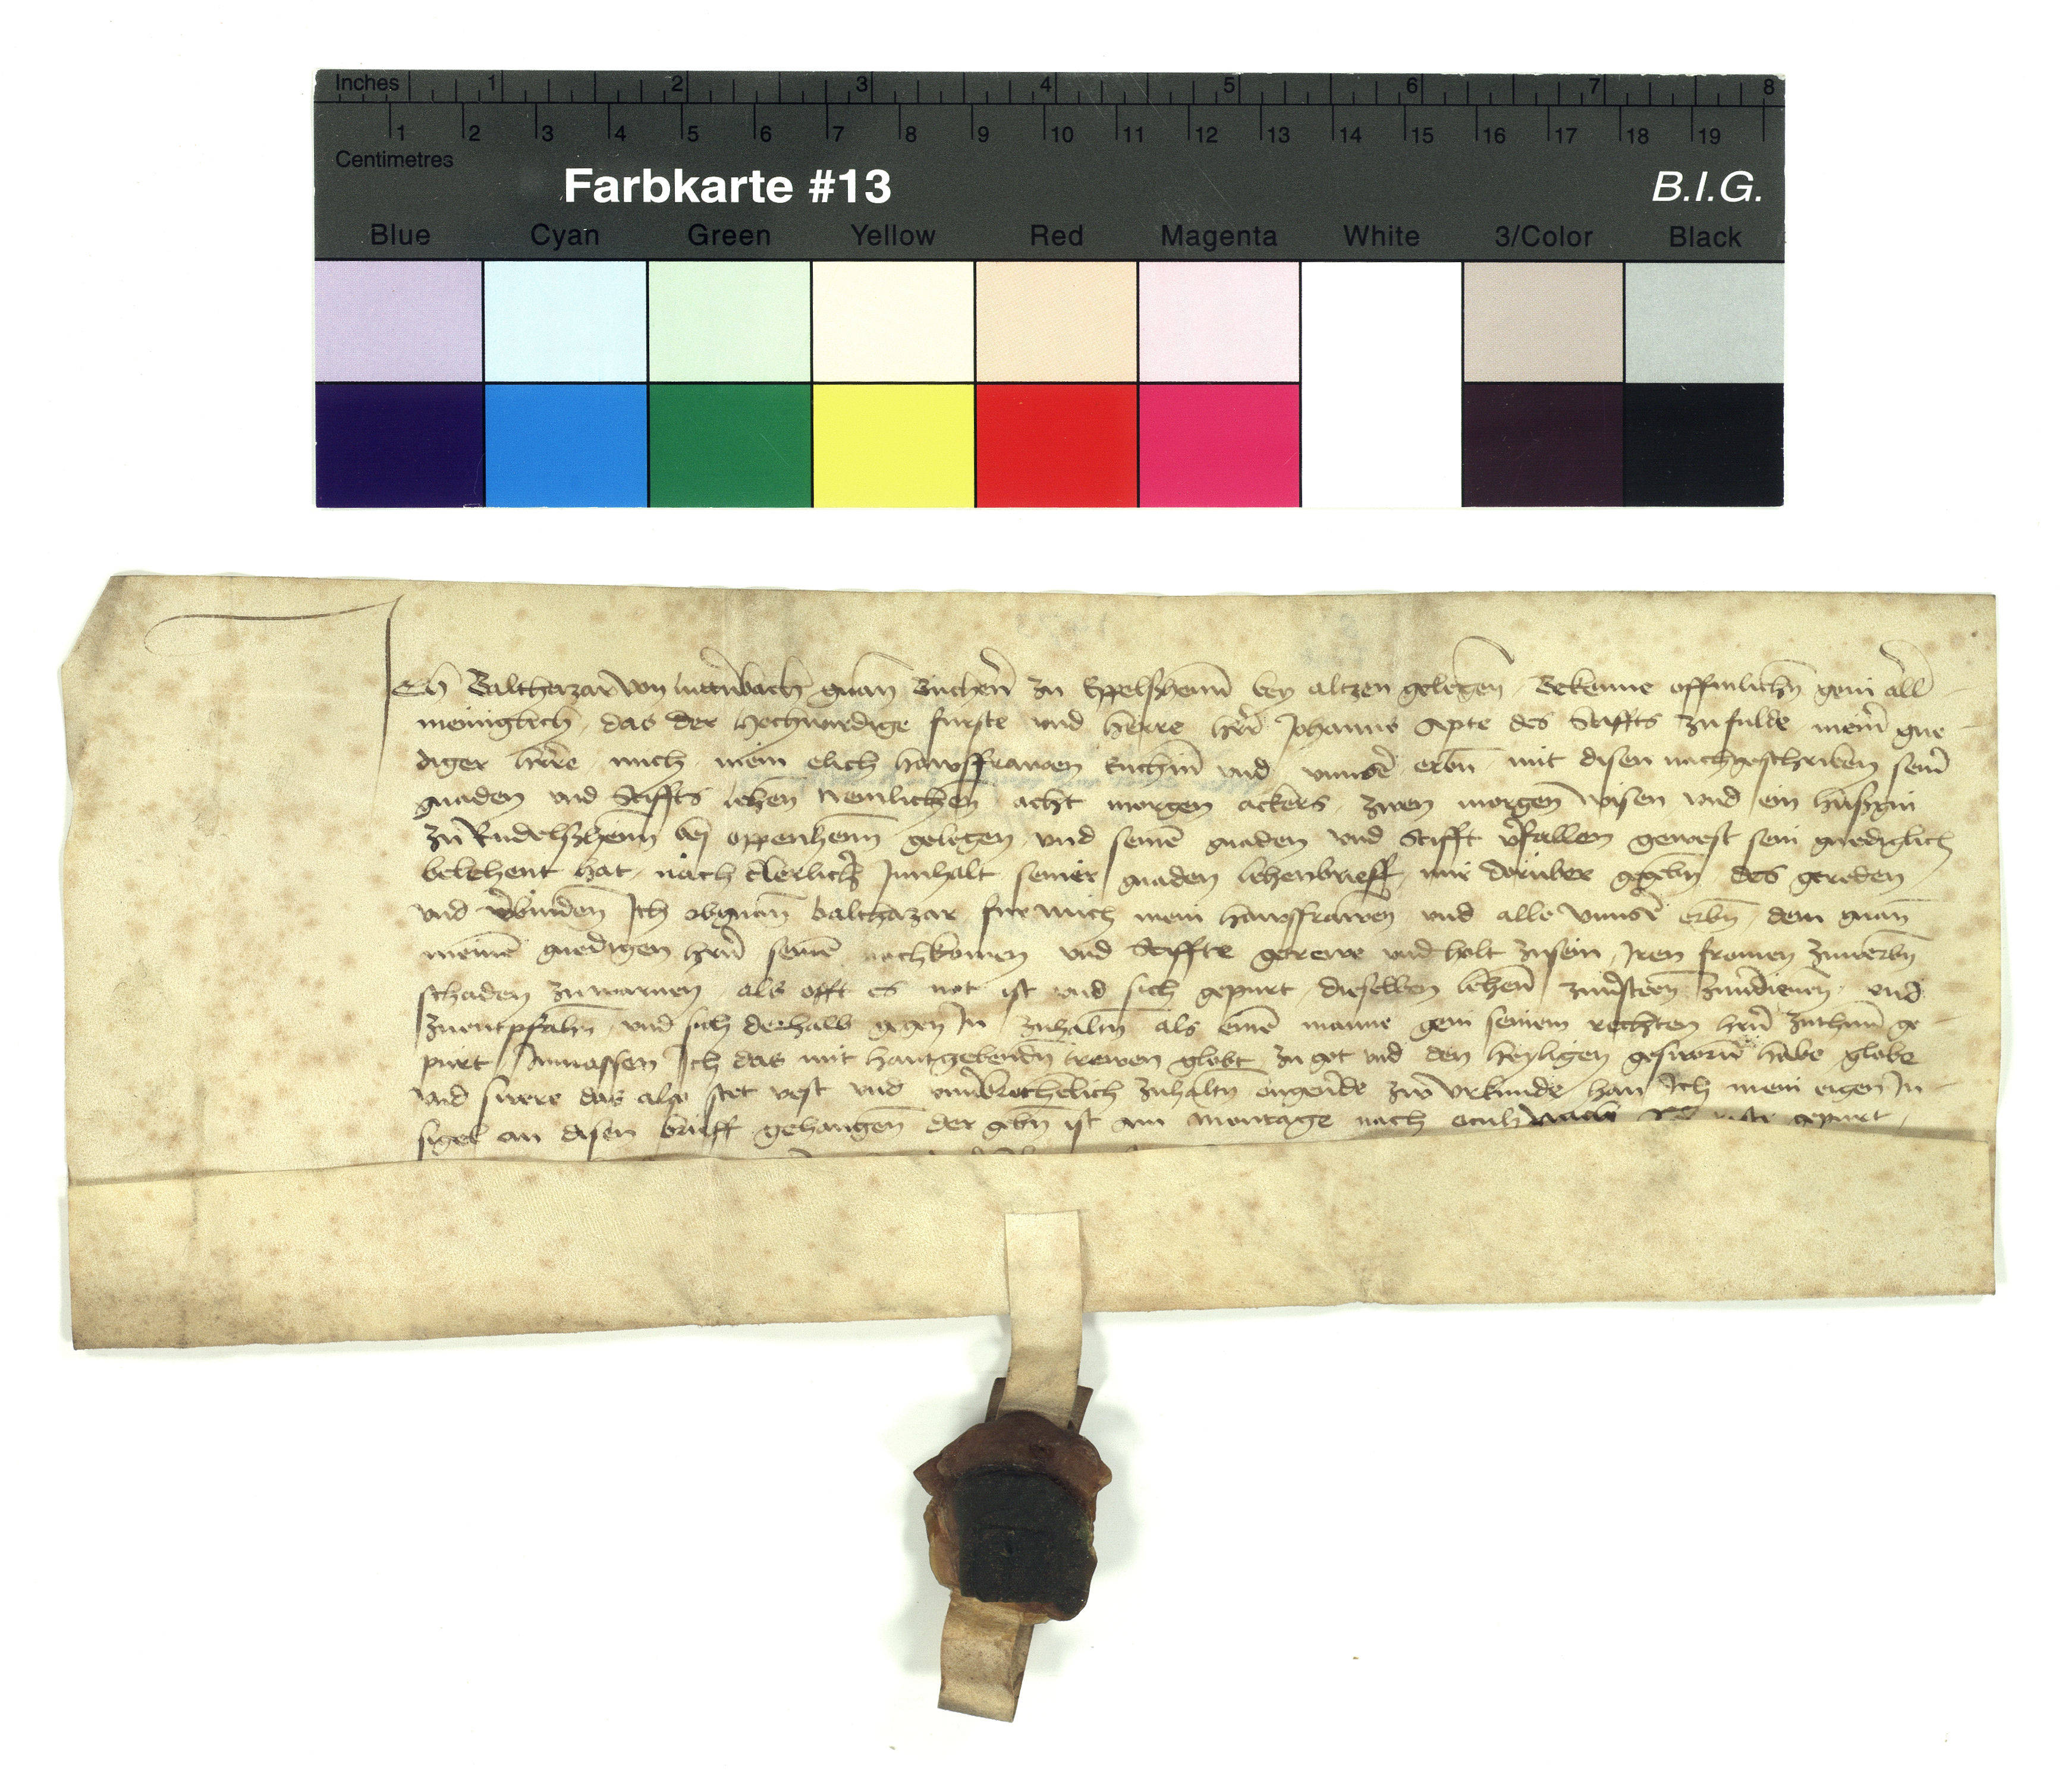 Inches 1 2 3 4 5 6 7 8
1 2 3 4 5 6 7 8 9 10 11 12 13 14 15 16 17 18 19
Centimetres
Farbkarte #13 B.I.G.
Blue Cyan Green Yellow Red Magenta White 3/Color Black
Ich Balthazar von gnan zu Eppelsheim bey altzen gelegen Bekenne offinlichn gein aller
meiniglich das der Hochwirdige furste und Herre her Johanns Apte des Stiffts zu fulde mein gne
diger herre mich mein elich hawsfrawen und unnser erbn mit disen nachgeschriben seinr
gnaden und Stiffts lehen Nemlichen acht morgen ackers zwen morgen wisen und ein
zu Rudelsheim bey oppenheim gelegen und seinen gnaden und Stifft verfallen gewest sein gnediglich
belehent hat nach clerlichs Innhalt seiner gnaden lehenbrieff mir doruber gegebn des gereden
und verbinden Ich obgnan balthazar fur mich mein hawsfrawen und alle unnser erbn dem gnan
meinen gnedigen hrn seinen nachkomen und Stiffte getrewe und holt zusein Iren fromen zuwerbn
schaden zuwarnen als offt es not ist und sich gepurt dieselben lehen zuverdienen und
zuentpfahn und sich derhalb gegen In zuhaltn als einen manne gein seinem rechten hrn zuthun ge
purt Inmassen Ich das mit hantgebenden trewen globt zu got und den heyligen gesworn habe globe
und swere das also stet vest und unverbrochelich zuhaltn ongeverde zu Urkunde han Ich mein eigen In
sigel an disen brieff gehangen der gebn ist am montage nach oculi gepurt